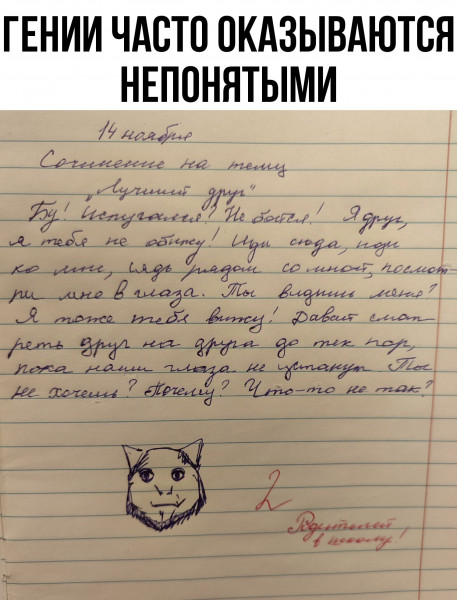 ГЕНИИ ЧАСТО ОКАЗЫВАЮТСЯ
НЕПОНЯТЫМИ
14 ноября
Сочинение на тему
„Лучший друг"
Бу! Испугался? Не бойся! Я друг,
я тебя не обижу! Иди сюда, иди
ко мне, сядь рядом со мной, посмот-
ри мне в глаза. Ты видишь меня?
Я тоже тебя вижу! Давай смот-
реть друг на друга до тех пор,
пока наши глаза не устанут. Ты
не хочешь? Почему? Что-то не так?
2
Родителей
в школу!